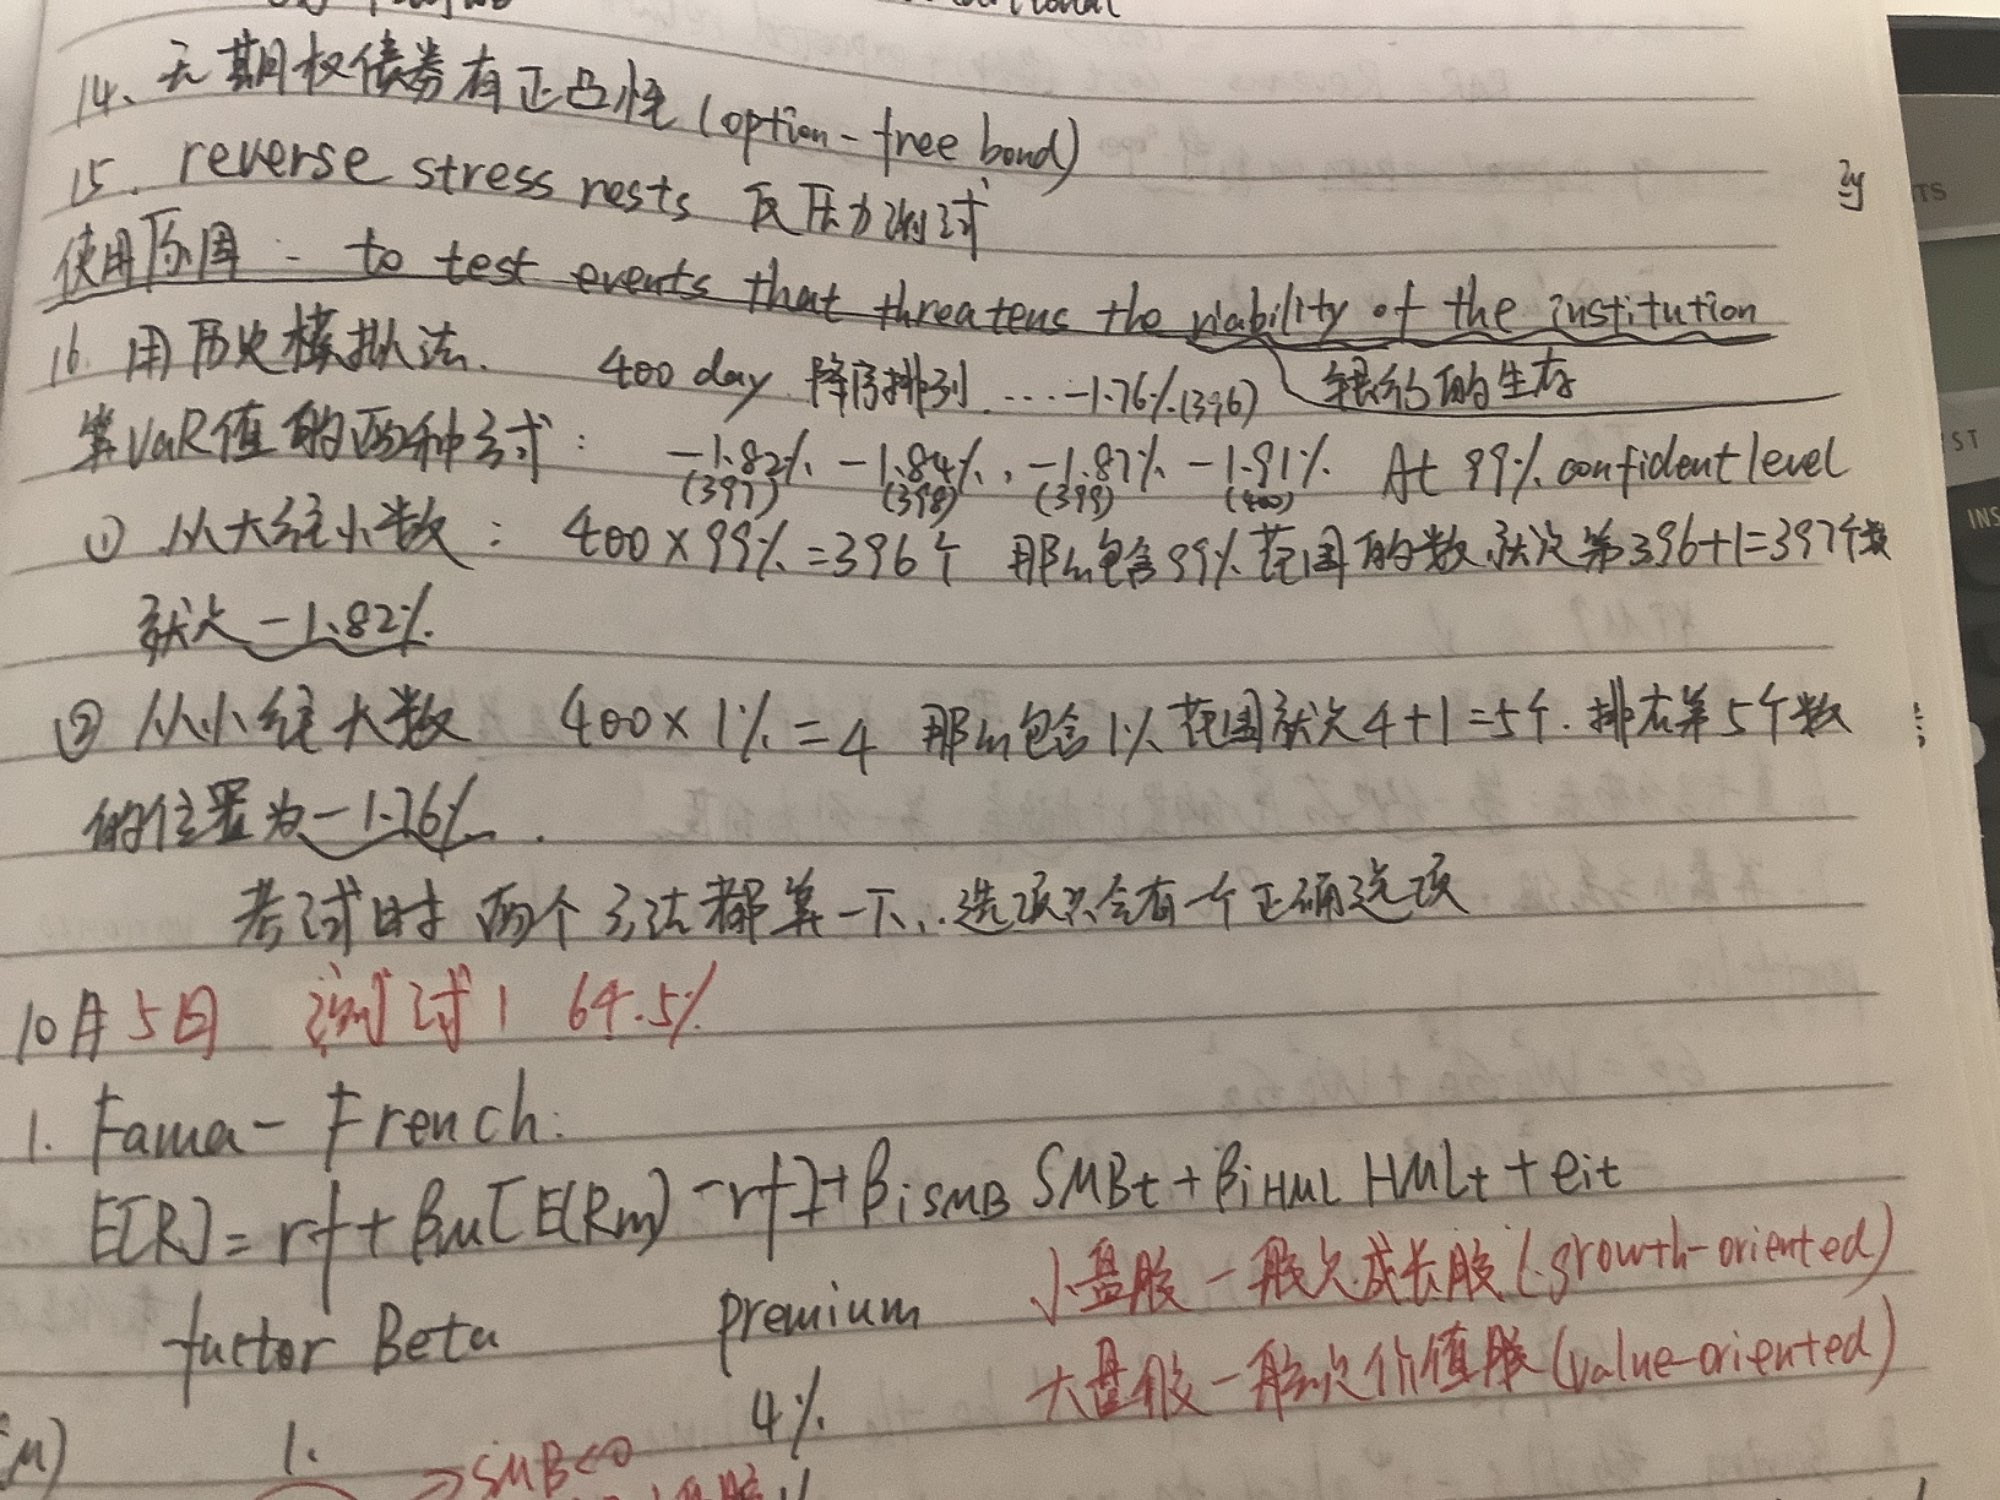 14、无期权债券有正凸性(option-free bond)
15. reverse stress rests 反压力测试
使用原因: to test events that threatens the viability of the institution
银行的生存
16. 用历史模拟法. 400 day 降序排列 ....-1.76%(396)
算VaR值的两种方式: -1.82%(397) -1.84%(398), -1.87%(399) -1.91%(400) At 99% confident level
① 从大往小数: 400×99%=396个 那么包含99%范围的数就是第396+1=397个数
就是 -1.82%.
② 从小往大数 400×1%=4 那么包含1%范围就是4+1=5个. 排在第5个数
的位置为-1.76%.
考试时两个方法都算一下, 选项只会有一个正确选项
10月5日 测试1 64.5%
1. Fama-French:
E[R]=rf+βM[E(Rm)-rf]+βiSMB SMBt+βiHML HMLt+eit
小盘股一般是成长股(growth-oriented)
factor Beta premium
大盘股一般是价值股(value-oriented)
4%
M) 1.
→SMB<0